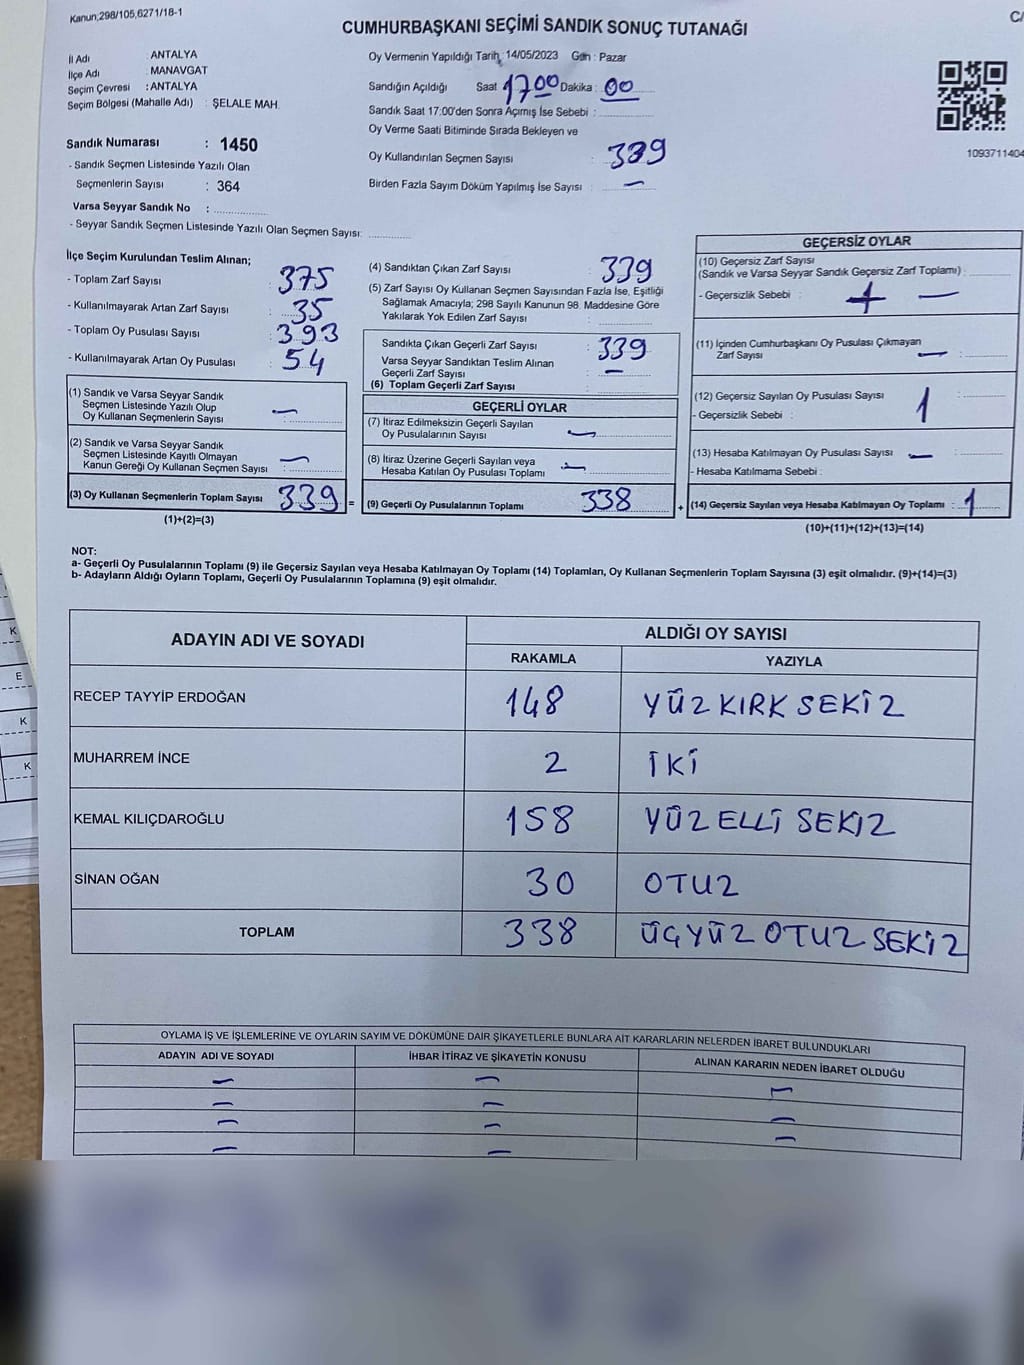 Kanun;298/105,6271/18-1
C/
CUMHURBAŞKANI SEÇİMİ SANDIK SONUÇ TUTANAĞI
İl Adı ANTALYA
İlçe Adı : MANAVGAT
Seçim Çevresi : ANTALYA
Seçim Bölgesi (Mahalle Adı) : ŞELALE MAH.
Sandık Numarası : 1450
- Sandık Seçmen Listesinde Yazılı Olan
Seçmenlerin Sayısı : 364
Varsa Seyyar Sandık No :
- Seyyar Sandık Seçmen Listesinde Yazılı Olan Seçmen Sayısı:
Oy Vermenin Yapıldığı Tarih 14/05/2023 Gün : Pazar
Sandığın Açıldığı Saat 17 00 Dakika : 00
Sandık Saat 17:00'den Sonra Açımış İse Sebebi :
Oy Verme Saati Bitiminde Sırada Bekleyen ve
Oy Kullandırılan Seçmen Sayısı : 339
Birden Fazla Sayım Döküm Yapılmış İse Sayısı : —
1093711404
İlçe Seçim Kurulundan Teslim Alınan;
- Toplam Zarf Sayısı : 375
- Kullanılmayarak Artan Zarf Sayısı : 35
- Toplam Oy Pusulası Sayısı : 393
- Kullanılmayarak Artan Oy Pusulası : 54
(1) Sandık ve Varsa Seyyar Sandık
Seçmen Listesinde Yazılı Olup
Oy Kullanan Seçmenlerin Sayısı : —
(2) Sandık ve Varsa Seyyar Sandık
Seçmen Listesinde Kayıtlı Olmayan
Kanun Gereği Oy Kullanan Seçmen Sayısı : —
(3) Oy Kullanan Seçmenlerin Toplam Sayısı 339 =
(1)+(2)=(3)
(4) Sandıktan Çıkan Zarf Sayısı : 339
(5) Zarf Sayısı Oy Kullanan Seçmen Sayısından Fazla İse, Eşitliği
Sağlamak Amacıyla; 298 Sayılı Kanunun 98. Maddesine Göre
Yakılarak Yok Edilen Zarf Sayısı :
Sandıkta Çıkan Geçerli Zarf Sayısı : 339
Varsa Seyyar Sandıktan Teslim Alınan
Geçerli Zarf Sayısı : —
(6) Toplam Geçerli Zarf Sayısı :
GEÇERLİ OYLAR
(7) İtiraz Edilmeksizin Geçerli Sayılan
Oy Pusulalarının Sayısı : —
(8) İtiraz Üzerine Geçerli Sayılan veya
Hesaba Katılan Oy Pusulası Toplamı : —
(9) Geçerli Oy Pusulalarının Toplamı 338 +
GEÇERSİZ OYLAR
(10) Geçersiz Zarf Sayısı
(Sandık ve Varsa Seyyar Sandık Geçersiz Zarf Toplamı) :
- Geçersizlik Sebebi : —
(11) İçinden Cumhurbaşkanı Oy Pusulası Çıkmayan
Zarf Sayısı — :
(12) Geçersiz Sayılan Oy Pusulası Sayısı 1 :
- Geçersizlik Sebebi :
(13) Hesaba Katılmayan Oy Pusulası Sayısı — :
- Hesaba Katılmama Sebebi :
(14) Geçersiz Sayılan veya Hesaba Katılmayan Oy Toplamı : 1
(10)+(11)+(12)+(13)=(14)
NOT:
a- Geçerli Oy Pusulalarının Toplamı (9) ile Geçersiz Sayılan veya Hesaba Katılmayan Oy Toplamı (14) Toplamları, Oy Kullanan Seçmenlerin Toplam Sayısına (3) eşit olmalıdır. (9)+(14)=(3)
b- Adayların Aldığı Oyların Toplamı, Geçerli Oy Pusulalarının Toplamına (9) eşit olmalıdır.
ADAYIN ADI VE SOYADI ALDIĞI OY SAYISI
RAKAMLA YAZIYLA
RECEP TAYYİP ERDOĞAN 148 YÜZ KIRK SEKİZ
MUHARREM İNCE 2 İKİ
KEMAL KILIÇDAROĞLU 158 YÜZ ELLİ SEKİZ
SİNAN OĞAN 30 OTUZ
TOPLAM 338 ÜÇYÜZ OTUZ SEKİZ
OYLAMA İŞ VE İŞLEMLERİNE VE OYLARIN SAYIM VE DÖKÜMÜNE DAİR ŞİKAYETLERLE BUNLARA AİT KARARLARIN NELERDEN İBARET BULUNDUKLARI
ADAYIN ADI VE SOYADI İHBAR İTİRAZ VE ŞİKAYETİN KONUSU ALINAN KARARIN NEDEN İBARET OLDUĞU
— — —
— — —
— — —
— —
K
E
K
K